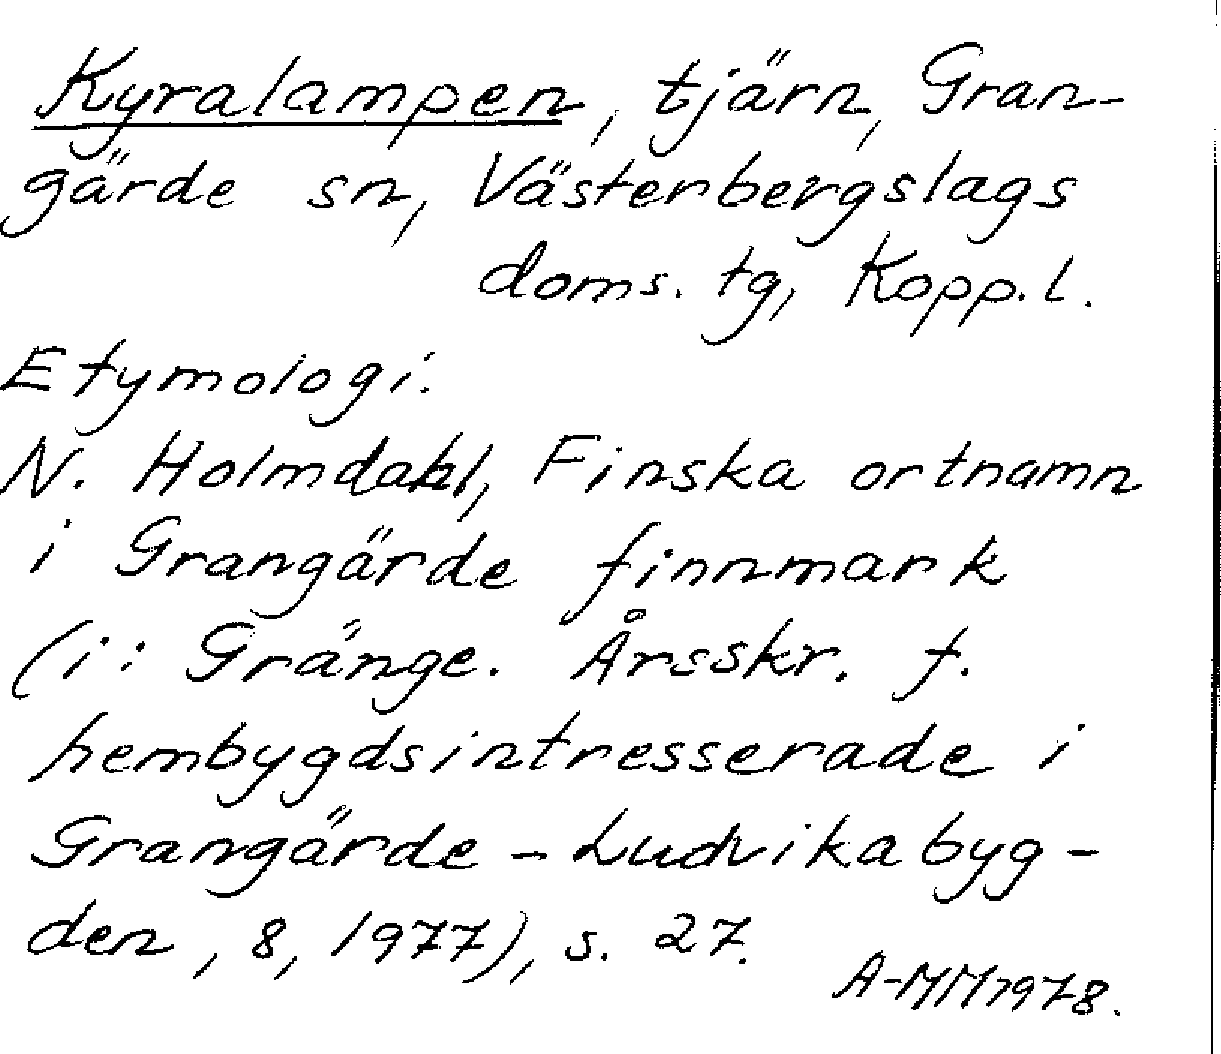 Kyralampen, tjärn, Gran-
gärde sn, Västerbergslags
doms. tg, Kopp. l.
Etymologi:
N. Holmdahl, Finska ortnamn
i Grangärde finnmark
(i: Gränge. Årsskr. f.
hembygdsintresserade i
Grangärde - Ludvikabyg-
den, 8, 1977), s. 27.
A-MM 1978.